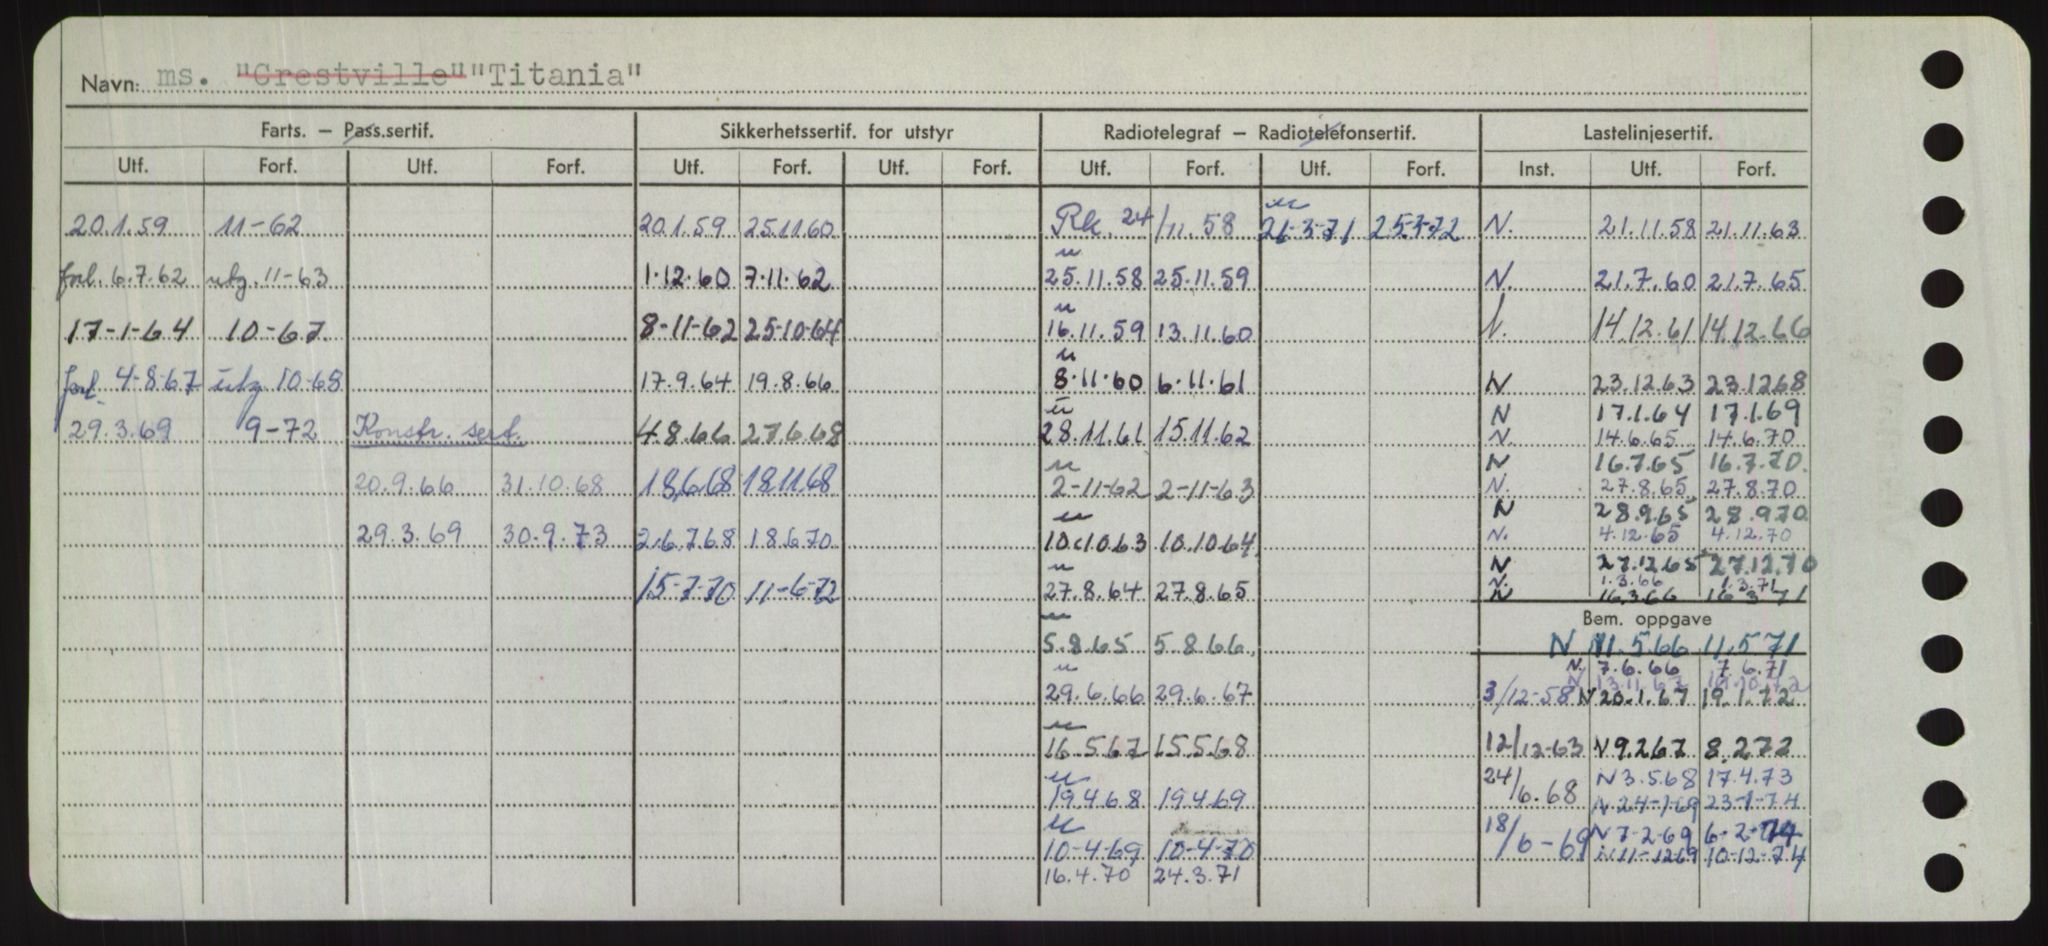 Navn: ms. "Crestville" "Titania"
Farts. – Pass.sertif. Sikkerhetssertif. for utstyr Radiotelegraf – Radiotelefonsertif. Lastelinjesertif.
Utf. Forf. Utf. Forf. Utf. Forf. Utf. Forf. Utf. Forf. Utf. Forf. Inst. Utf. Forf.
20.1.59 11-62 20.1.59 25.11.60 Rk. 24/11.58 21-3-71 25-3-72 N. 21.11.58 21.11.63
forl. 6.7.62 utg. 11-63 1.12.60 7.11.62 25.11.58 25.11.59 N. 21.7.60 21.7.65
17-1-64 10-67 8-11-62 25-10-64 16.11.59 13.11.60 N. 14.12.61 14.12.66
forl. 4-8-67 utg 10-68 17.9.64 19.8.66 8.11.60 6.11.61 N 23.12.63 23.12.68
N 17.1.64 17.1.69
29.3.69 9-72 Konstr. sert. 4.8.66 27.6.68 28.11.61 15.11.62 N. 14.6.65 14.6.70
N 16.7.65 16.7.70
20.9.66 31.10.68 18.6.68 18.11.68 2-11-62 2-11-63 N. 27.8.65 27.8.70
N 28.9.65 28.9.70
29.3.69 30.9.73 26.7.68 18.6.70 10.10.63 10.10.64 N. 4.12.65 4.12.70
N 27.12.65 27.12.70
N. 1.3.66 1.3.71
15-7-70 11-6-72 27.8.64 27.8.65 N 16.3.66 16.3.71
Bem. oppgave
5.8.65 5.8.66 N 11.5.66 11.5.71
N. 7.6.66 7.6.71
N 13.11.67 19.10.72
29.6.66 29.6.67 3/12-58 N 20.1.67 19.1.72
16.5.67 15.5.68 12/12-63 N 9.2.67 8.2.72
24/6.68 N 3.5.68 17.4.73
19.4.68 19.4.69 N 24-1-69 23-1-74
18/6-69 N 7-2-69 6-2-74
10-4-69 10-4-70 N 11-12-69 10-12-74
16.4.70 24.3.71